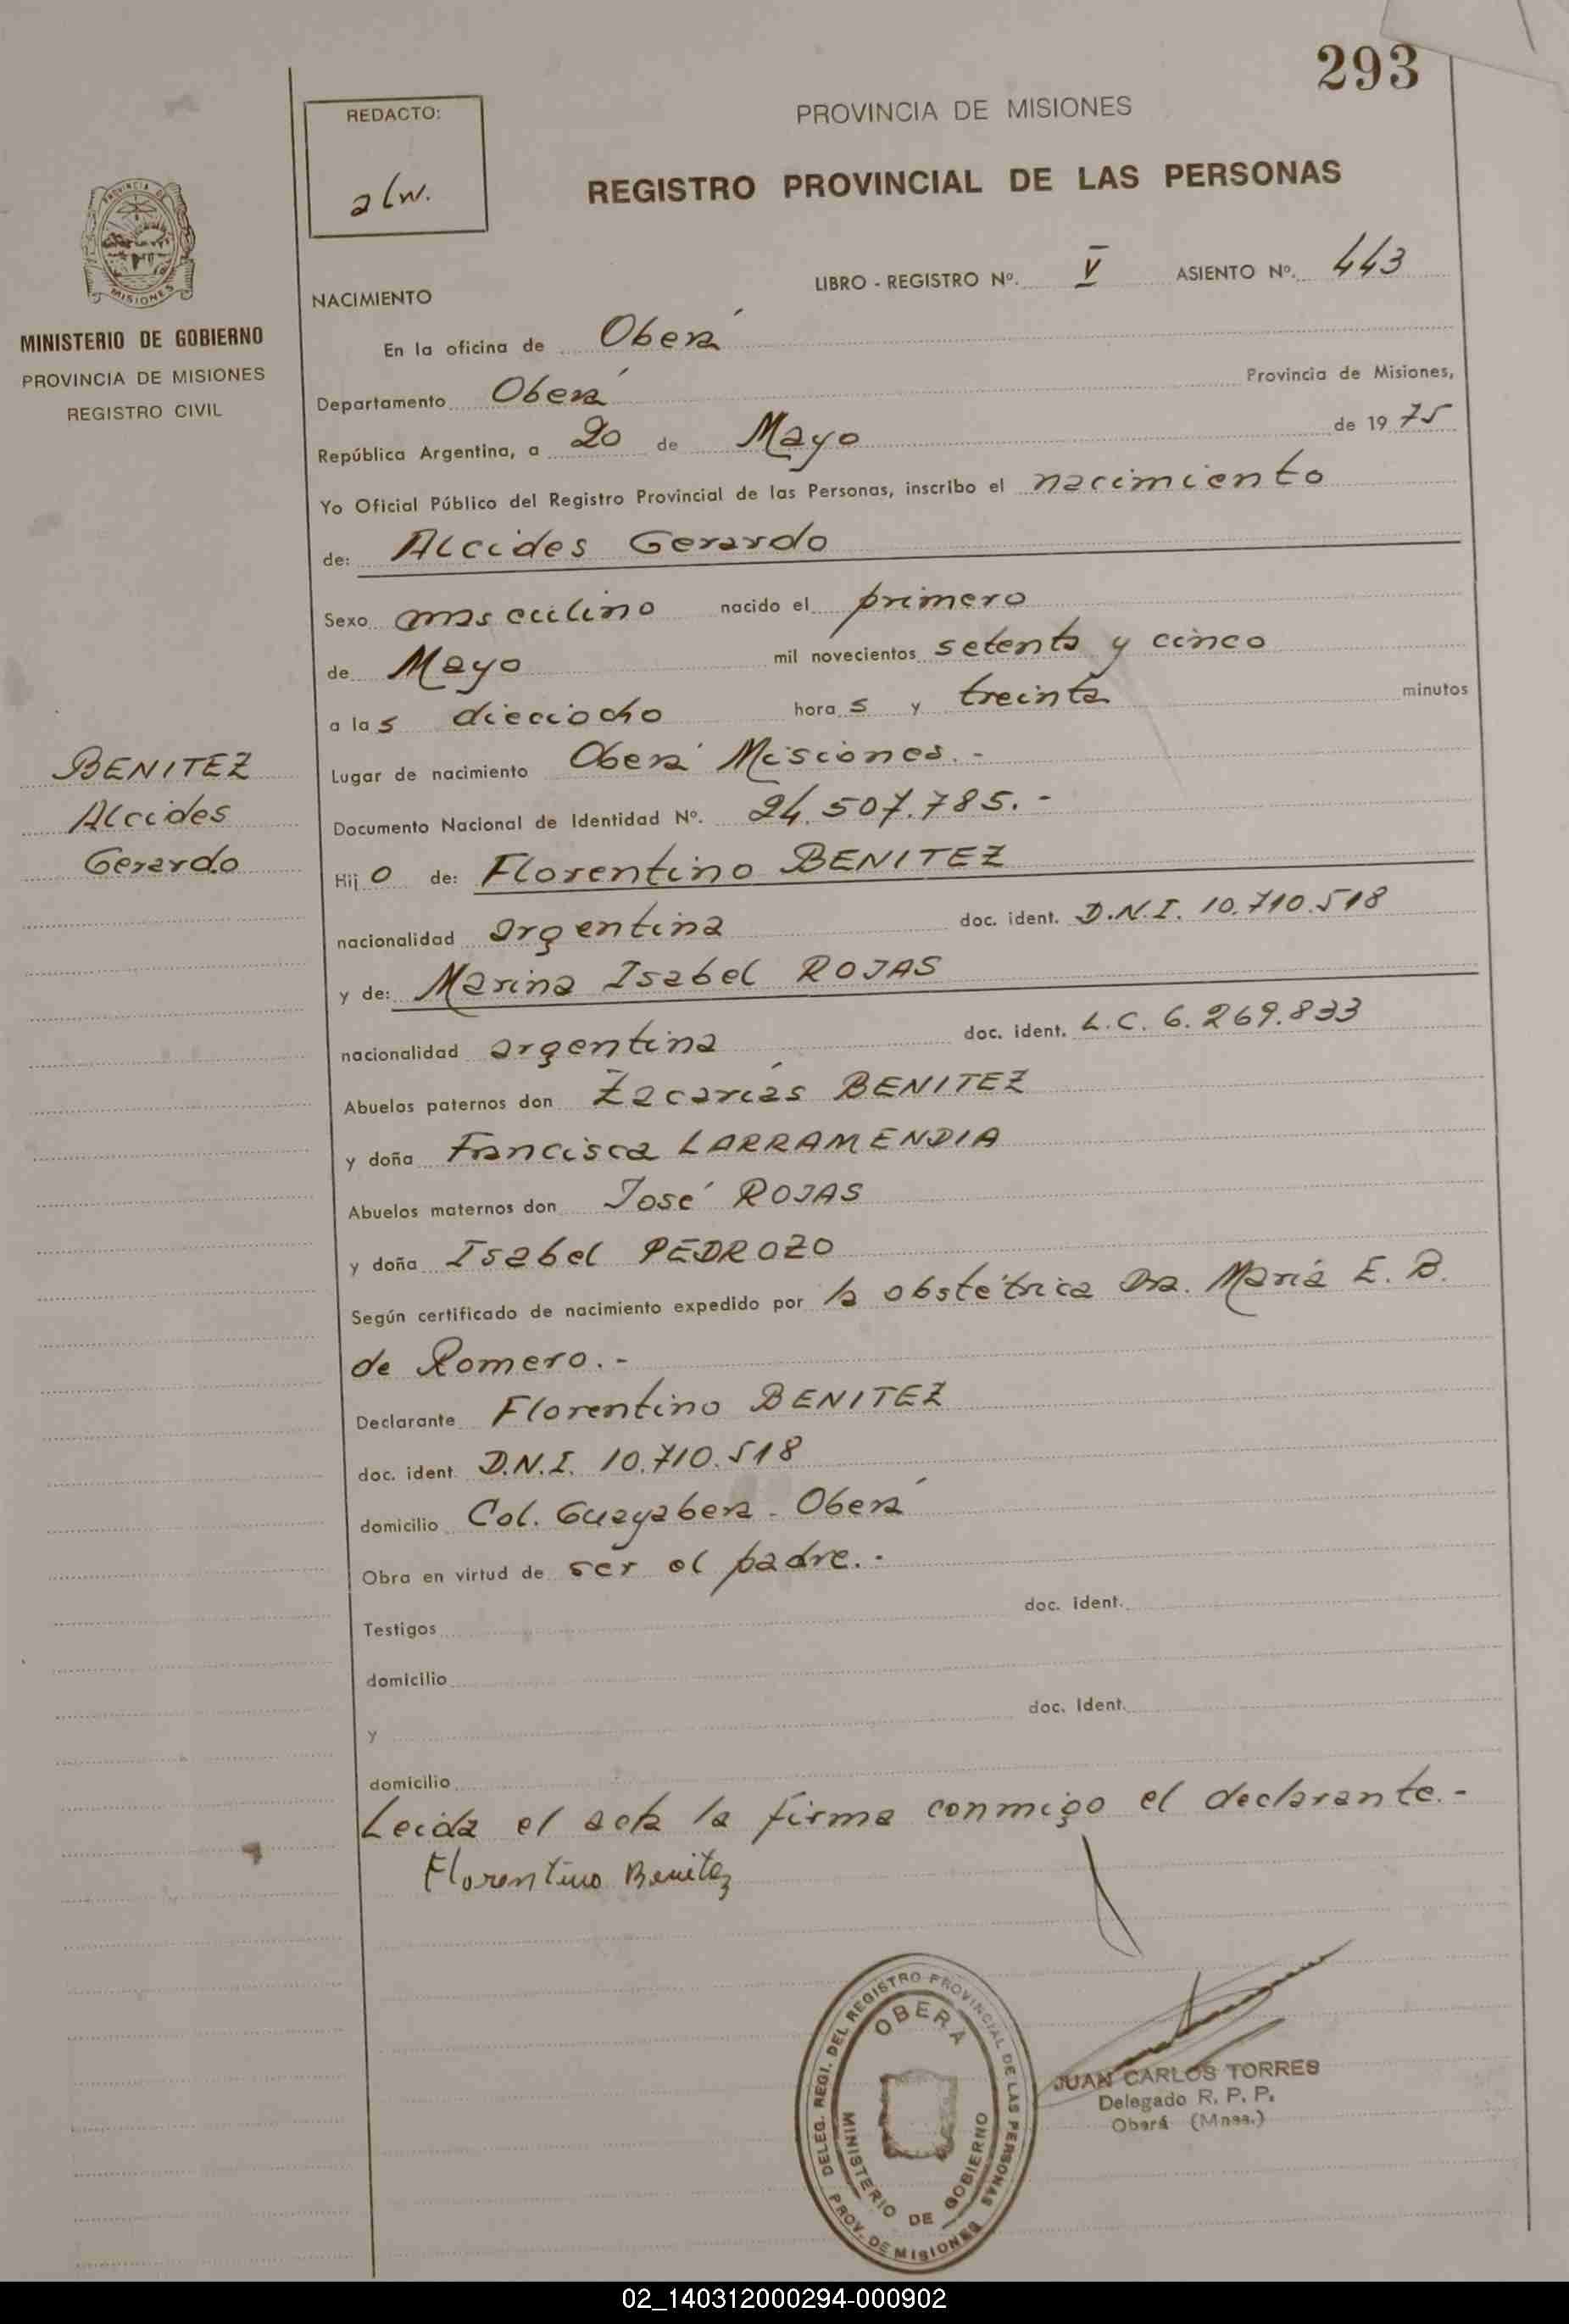 293
REDACTO:
alw.
PROVINCIA DE MISIONES
REGISTRO PROVINCIAL DE LAS PERSONAS
LIBRO - REGISTRO Nº. V ASIENTO Nº. 443
PROVINCIA DE
MISIONES
MINISTERIO DE GOBIERNO
PROVINCIA DE MISIONES
REGISTRO CIVIL
NACIMIENTO
En la oficina de Oberá
Departamento Oberá Provincia de Misiones,
República Argentina, a 20 de Mayo de 1975
Yo Oficial Público del Registro Provincial de las Personas, inscribo el nacimiento
de: Alcides Gerardo
Sexo masculino nacido el primero
de Mayo mil novecientos setenta y cinco
a las dieciocho horas y treinta minutos
Lugar de nacimiento Oberá Misiones.-
BENITEZ
Alcides
Gerardo
Documento Nacional de Identidad Nº. 24.507.785.-
Hijo de: Florentino BENITEZ
nacionalidad argentina doc. ident. D.N.I. 10.710.518
y de: Marina Isabel ROJAS
nacionalidad argentina doc. ident. L.C. 6.269.833
Abuelos paternos don Zacarías BENITEZ
y doña Francisca LARRAMENDIA
Abuelos maternos don José ROJAS
y doña Isabel PEDROZO
Según certificado de nacimiento expedido por la obstétrica Dra. María E. B.
de Romero.-
Declarante Florentino BENITEZ
doc. ident. D.N.I. 10.710.518
domicilio Col. Guayabera - Oberá
Obra en virtud de ser el padre.-
Testigos doc. ident.
domicilio
y doc. ident.
domicilio
Leida el acta la firma conmigo el declarante.-
Florentino Benitez
DELEG. REGI. DEL REGISTRO PROVINCIAL DE LAS PERSONAS
OBERA
MINISTERIO DE GOBIERNO
PROV. DE MISIONES
JUAN CARLOS TORRES
Delegado R. P. P.
Oberá (Mnes.)
02_140312000294-000902